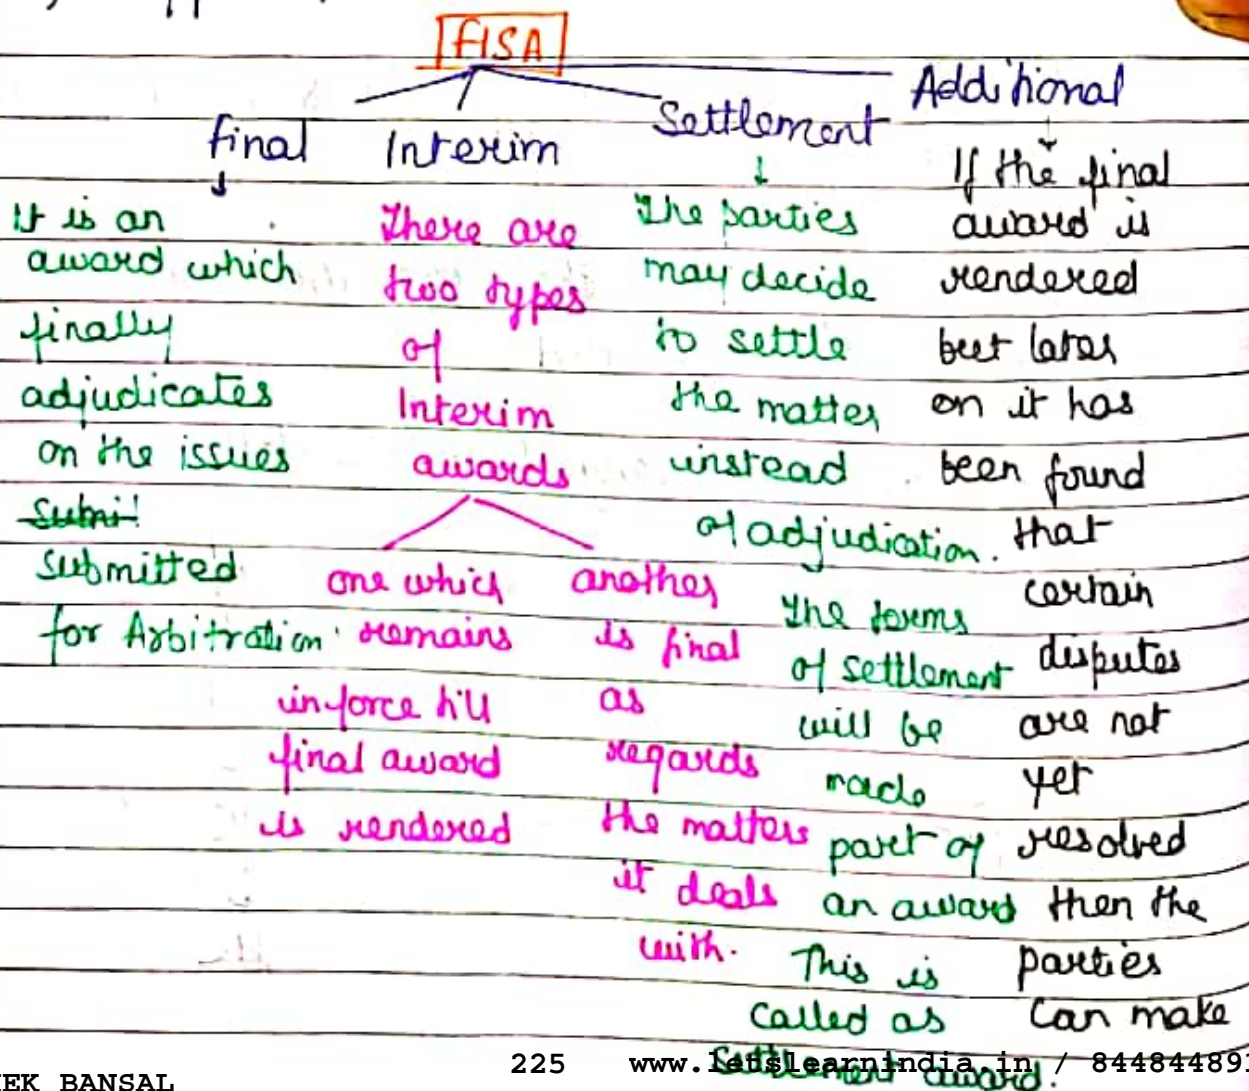 FISA
Final
It is an
award which
finally
adjudicates
on the issues
Submi
submitted
for Arbitration
Interim
There are
two types
of
Interim
awards
one which
remains
in force till
final award
is rendered
another
is final
as
regards
the matters
it deals
with.
Settlement
The parties
may decide
to settle
the matter
instead
of adjudication.
The terms
of settlement
will be
made
part of
an award
This is
called as
Settlement award.
Additional
If the final
award is
rendered
but later
on it has
been found
that
certain
disputes
are not
yet
resolved
then the
parties
can make
225 www.letslearnindia.in / 844844891
EK BANSAL